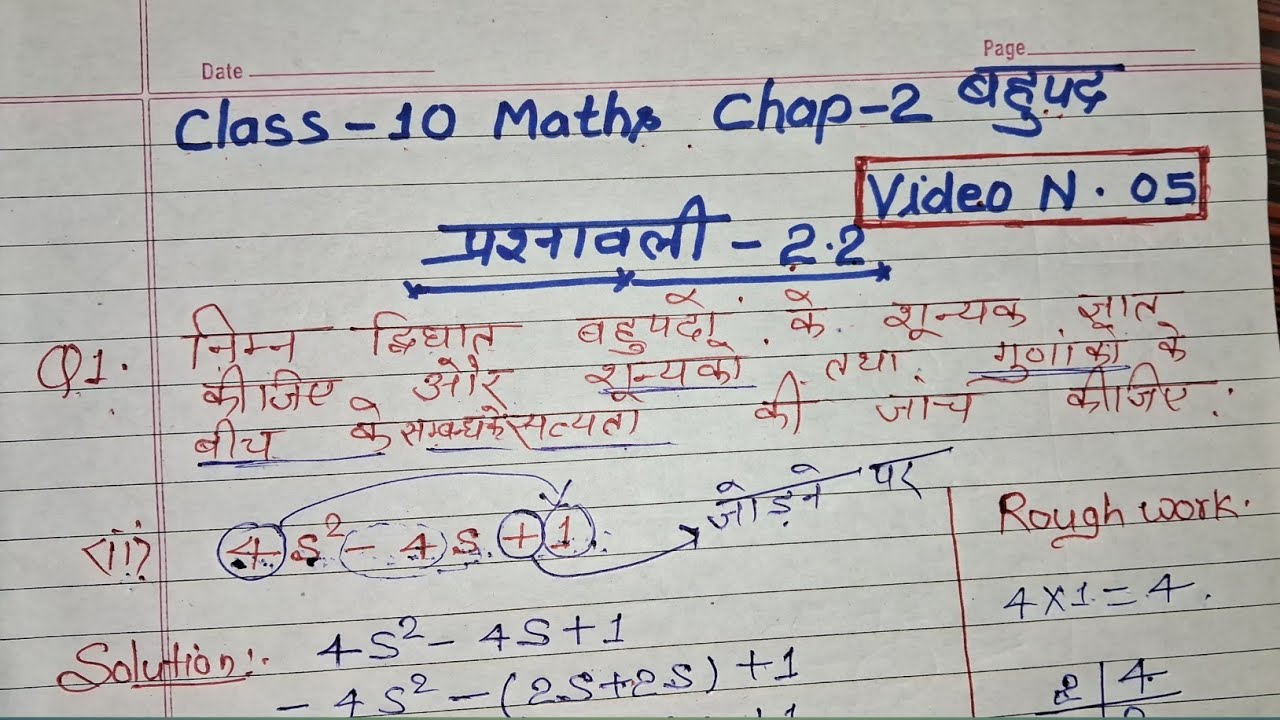 Date
Page
Class-10 Maths Chap-2 बहुपद
Video N. 05
प्रश्नावली - 2.2
Q1. निम्न द्विघात बहुपदों के शून्यक ज्ञात
कीजिए और शून्यकों तथा गुणांकों के
बीच के सम्बन्ध के सत्यता की जांच कीजिए:
(ii) 4s² - 4s + 1
जोड़ने पर
Rough work.
4×1=4.
Solution:- 4s² - 4s + 1
- 4s² - (2s+2s) + 1
2 | 4